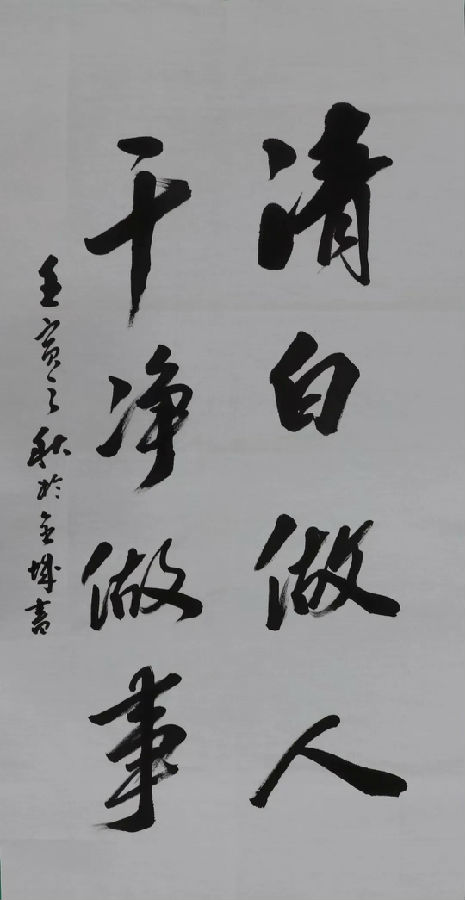 清白做人
干净做事
壬寅之秋於金城書